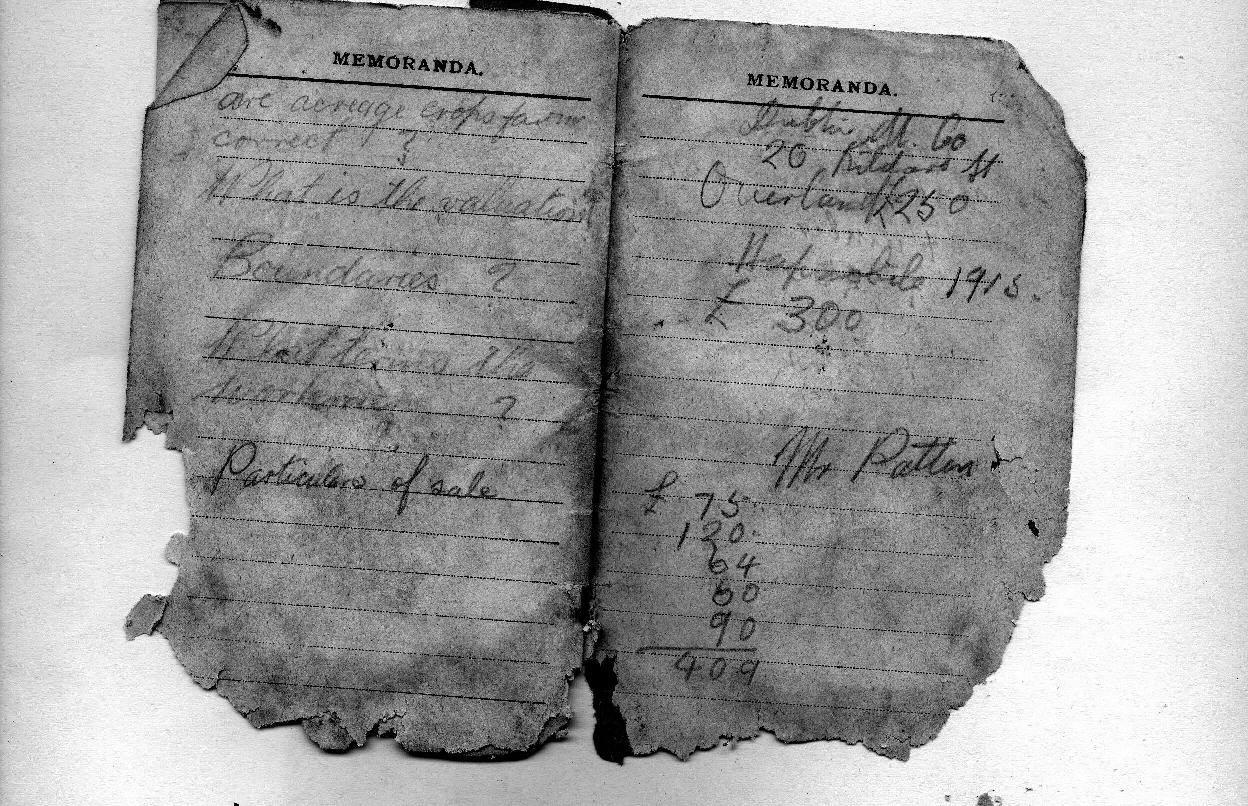 MEMORANDA.
are acreage crops farm
correct ?
What is the valuation
Boundaries ?
What terms the
?
Particulars of sale
MEMORANDA.
Dublin M. Co
20 Kildare St
Overland £250
Hupmobile 1915.
£ 300
Mr Patten
£ 75
120
64
60
90
409